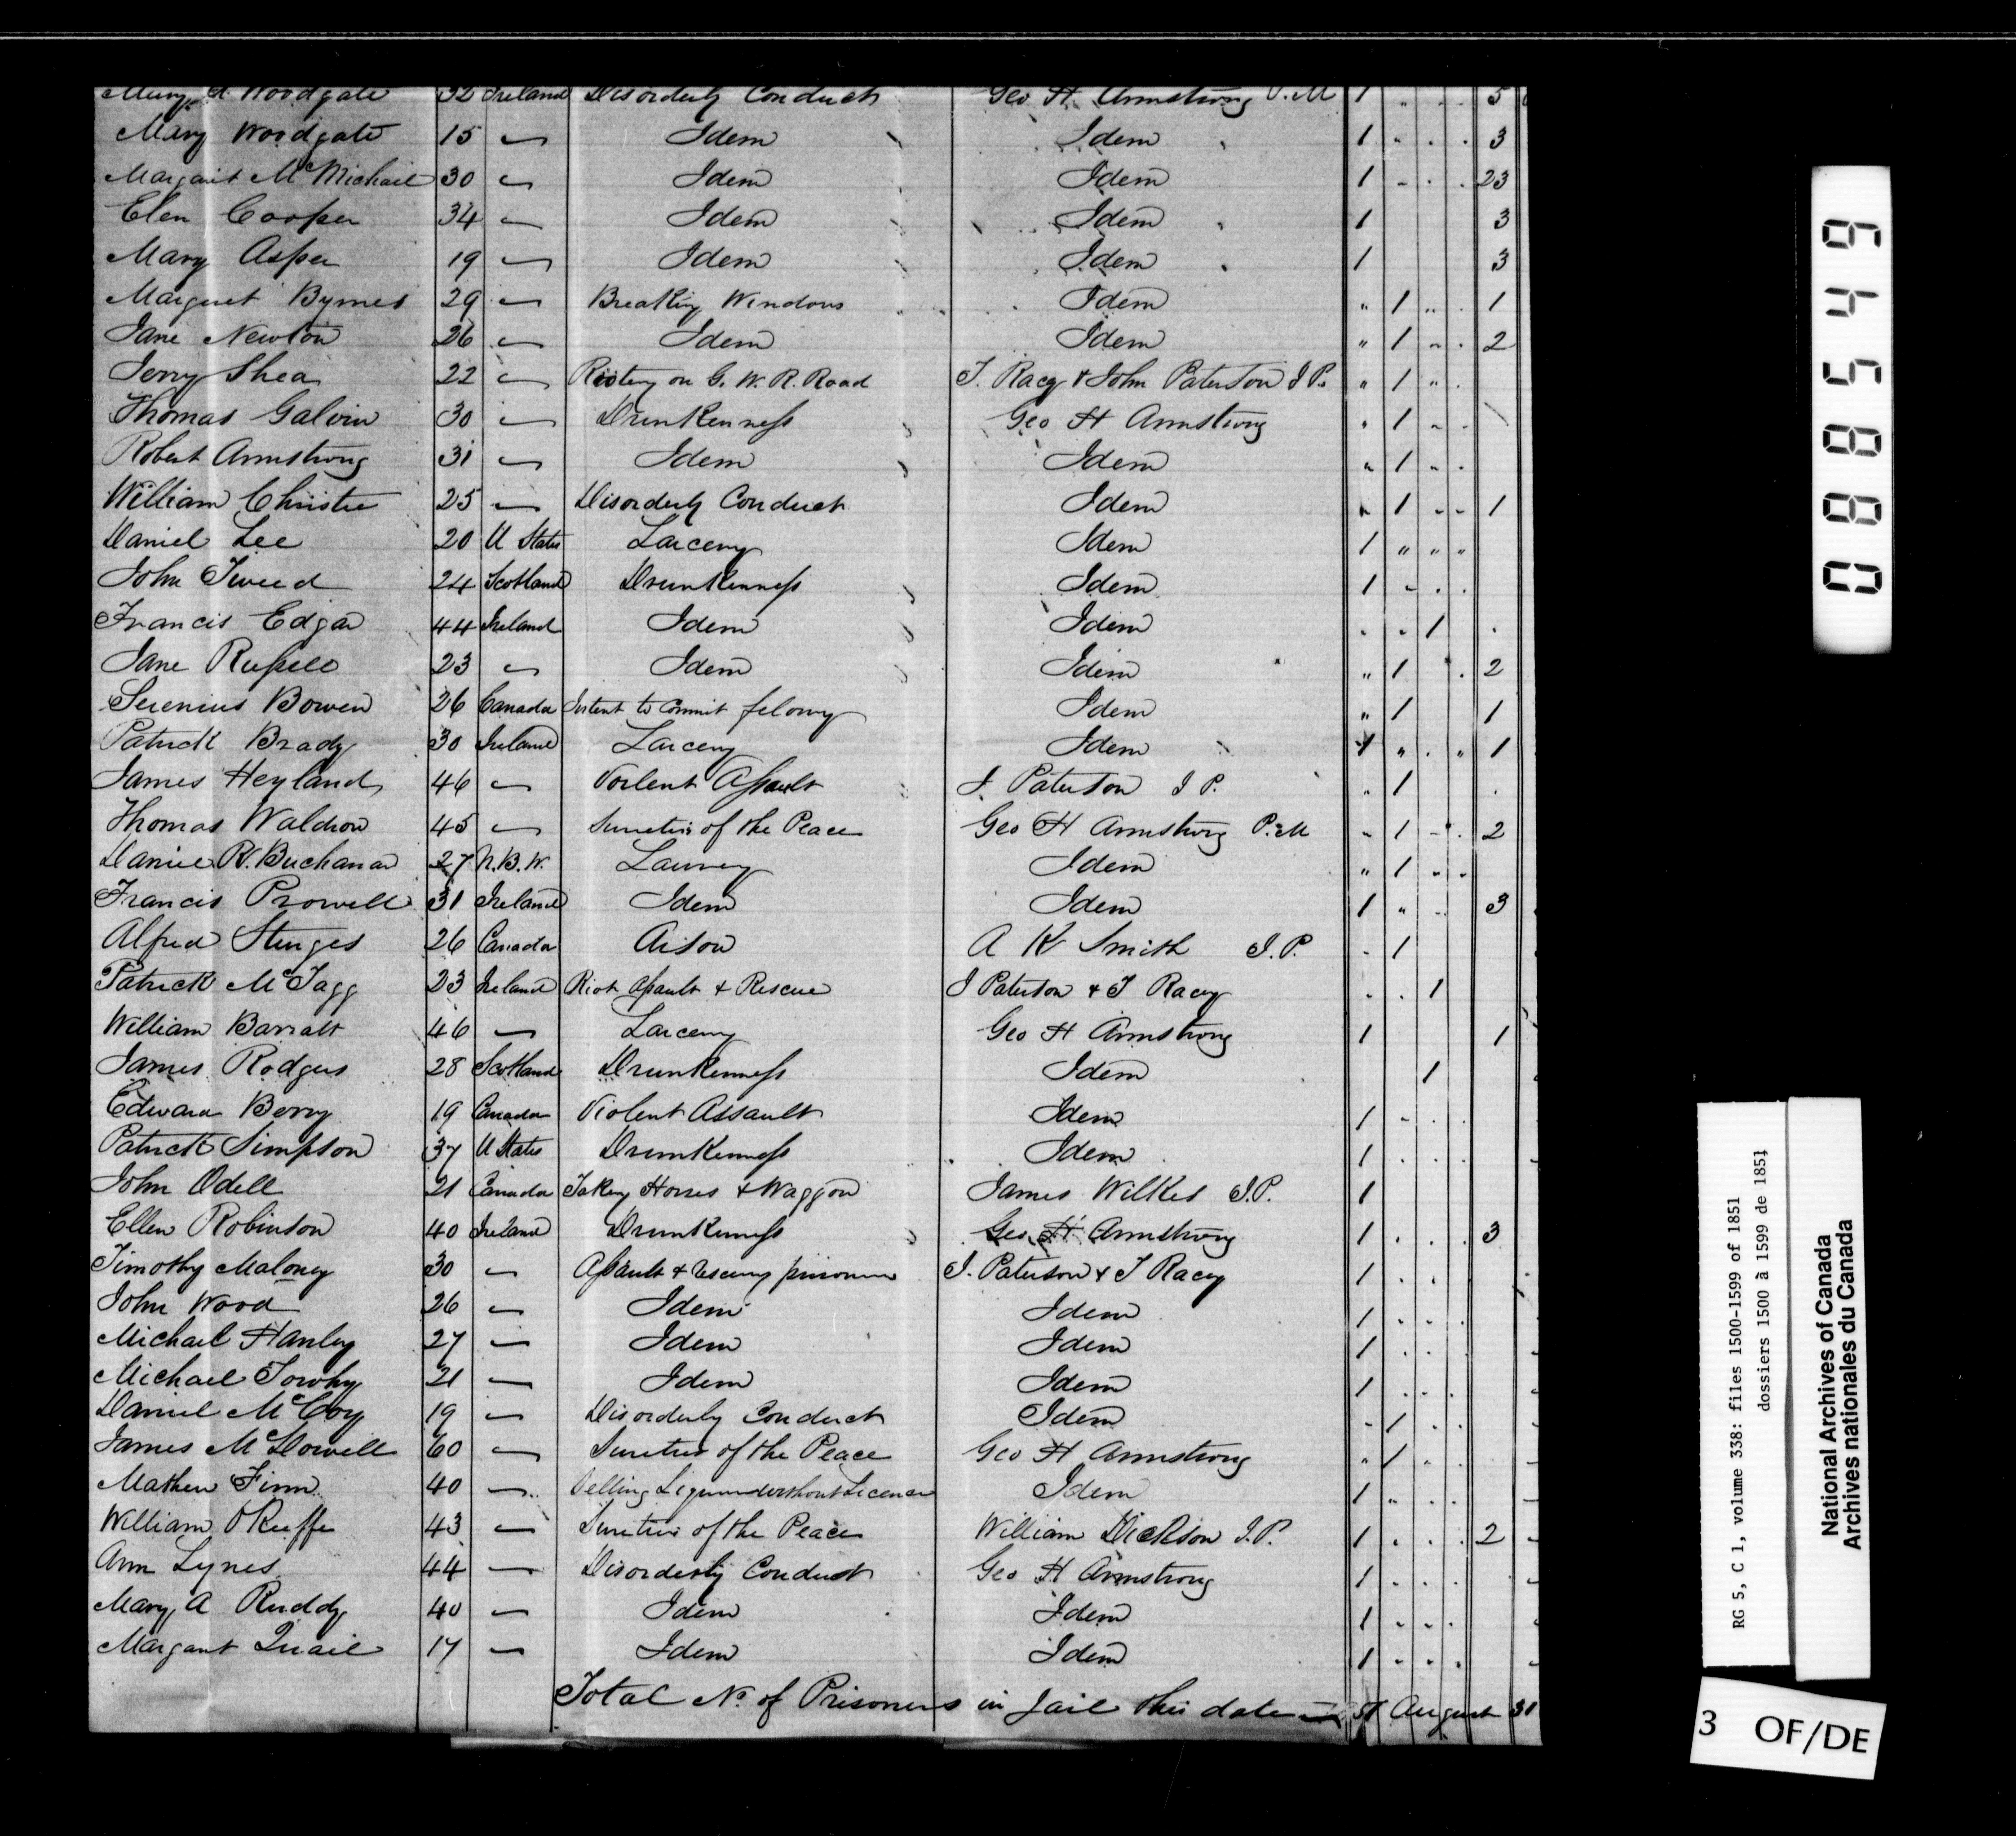 Mary A. Woodgate 32 Ireland Disorderly Conduct Geo H Armstrong P.M 1 " . . 5
Mary Woodgate 15 — Idem Idem 1 " . . 3
Margaret McMichael 30 — Idem Idem 1 - . . 23
Elen Cooper 34 — Idem Idem 1 3
Mary Asper 19 — Idem Idem 1 3
Marguret Byrnes 29 — Breaking Windows Idem " 1 " . 1
Jane Newton 26 — Idem Idem " 1 " . 2
Jerry Shea 22 — Rioting on G. W. R. Road T. Racy & John Paterson J P. " 1 "
Thomas Galvin 30 — Drunkenness Geo H Armstrong " 1 - .
Robert Armstrong 31 — Idem Idem " 1 - .
William Christie 25 — Disorderly Conduct Idem " 1 - - 1
Daniel Lee 20 U States Larceny Idem 1 " " "
John Tweed 24 Scotland Drunkenness Idem 1 - . .
Francis Edgar 44 Ireland Idem Idem . . 1 .
Jane Russell 23 — Idem Idem " 1 . . 2
Serenius Bowen 26 Canada Intent to Commit felony Idem " 1 1
Patrick Brady 30 Ireland Larceny Idem 1 " . " 1
James Heyland 46 — Voilent Assault J. Paterson J P. " 1 .
Thomas Waldron 45 — Sureties of the Peace Geo H Armstrong P.M - 1 - . 2
Daniel R. Buchanan 27 N.B.W. Larceny Idem " 1 - -
Francis Prowell 31 Ireland Idem Idem 1 " - 3
Alfred Sturges 26 Canada Arson A K Smith J.P. - 1
Patrick McTagg 23 Ireland Riot Assault & Rescue J Paterson & T Racey . . 1
William Barratt 46 — Larceny Geo H Armstrong 1 1
James Rodgers 28 Scotland Drunkenness Idem 1
Edward Berry 19 Canada Violent Assault Idem 1 - .
Patrick Simpson 37 U States Drunkenness Idem 1 . . .
John Odell 21 Canada Taking Horses & Waggon James Wilkes J.P. 1
Ellen Robinson 40 Ireland Drunkenness Geo H Armstrong 1 . . . 3
Timothy Maloney 30 — Assault & rescuing prisoner J. Paterson & T Racey 1 . .
John Wood 26 — Idem Idem 1 . .
Michael Hanley 27 — Idem Idem 1 . .
Michael 21 — Idem Idem 1 . . .
Daniel McCoy 19 — Disorderly Conduct Idem - 1 . .
James McDowell 60 — Sureties of the Peace Geo H Armstrong " 1 . .
Mathew Finn 40 — Selling Liquor without Licence Idem 1 " . .
William OKeeffe 43 — Sureties of the Peace William Dickson J.P. 1 . . . 2
Ann Lynes 44 — Disorderly Conduct Geo H Armstrong 1 . . .
Mary A Ruddy 40 — Idem Idem 1 . . .
Margant Quail 17 — Idem Idem 1 . . .
Total No. of Prisoners in Jail this date — 51 August 31
088549
RG 5, C 1, volume 338: files 1500-1599 of 1851
dossiers 1500 à 1599 de 1851
National Archives of Canada
Archives nationales du Canada
3 OF/DE